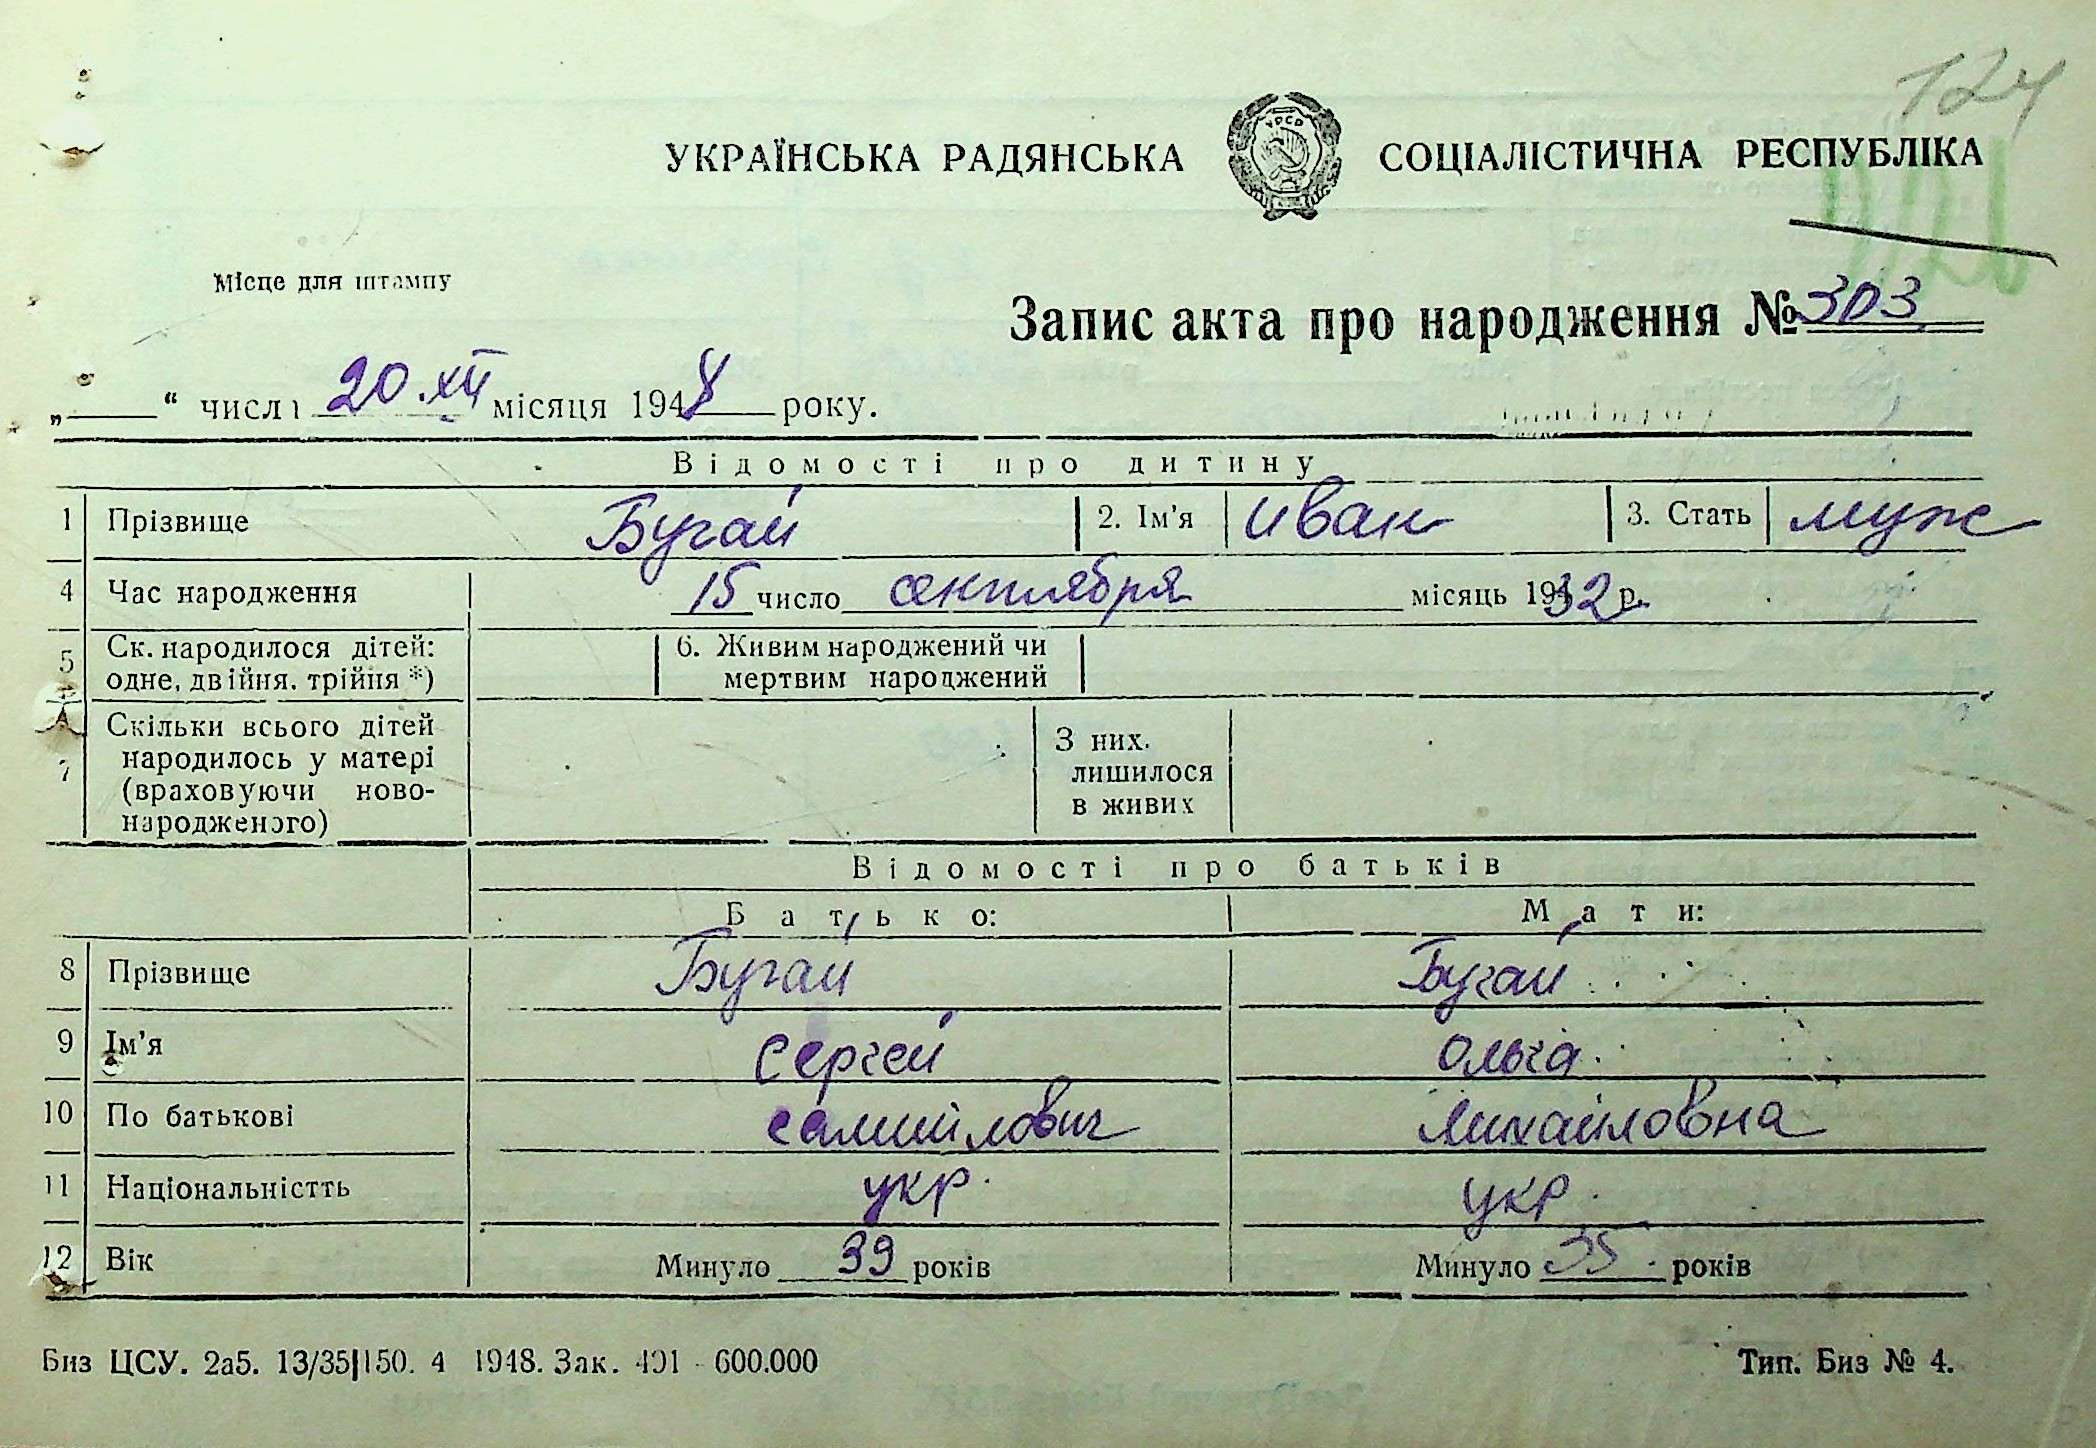 124
УКРАЇНСЬКА РАДЯНСЬКА СОЦІАЛІСТИЧНА РЕСПУБЛІКА
УРСР
Місце для штампу
Запис акта про народження № 303
„ “ числа 20.XII місяця 1948 року.
Відомості про дитину
1 Прізвище Бугай 2. Ім'я Иван 3. Стать муж
4 Час народження 15 число сентября місяць 1932 р.
5 Ск. народилося дітей: одне, двійня, трійня *) 6. Живим народжений чи мертвим народжений
7 Скільки всього дітей народилось у матері (враховуючи новонародженого) З них лишилося в живих
Відомості про батьків
Батько: Мати:
8 Прізвище Бугай Бугай
9 Ім'я Сергей Ольга
10 По батькові Самийлович Михайловна
11 Національністть укр. укр.
12 Вік Минуло 39 років Минуло 35 років
Биз ЦСУ. 2а5. 13/35|150. 4 1948. Зак. 401 - 600.000 Тип. Биз № 4.